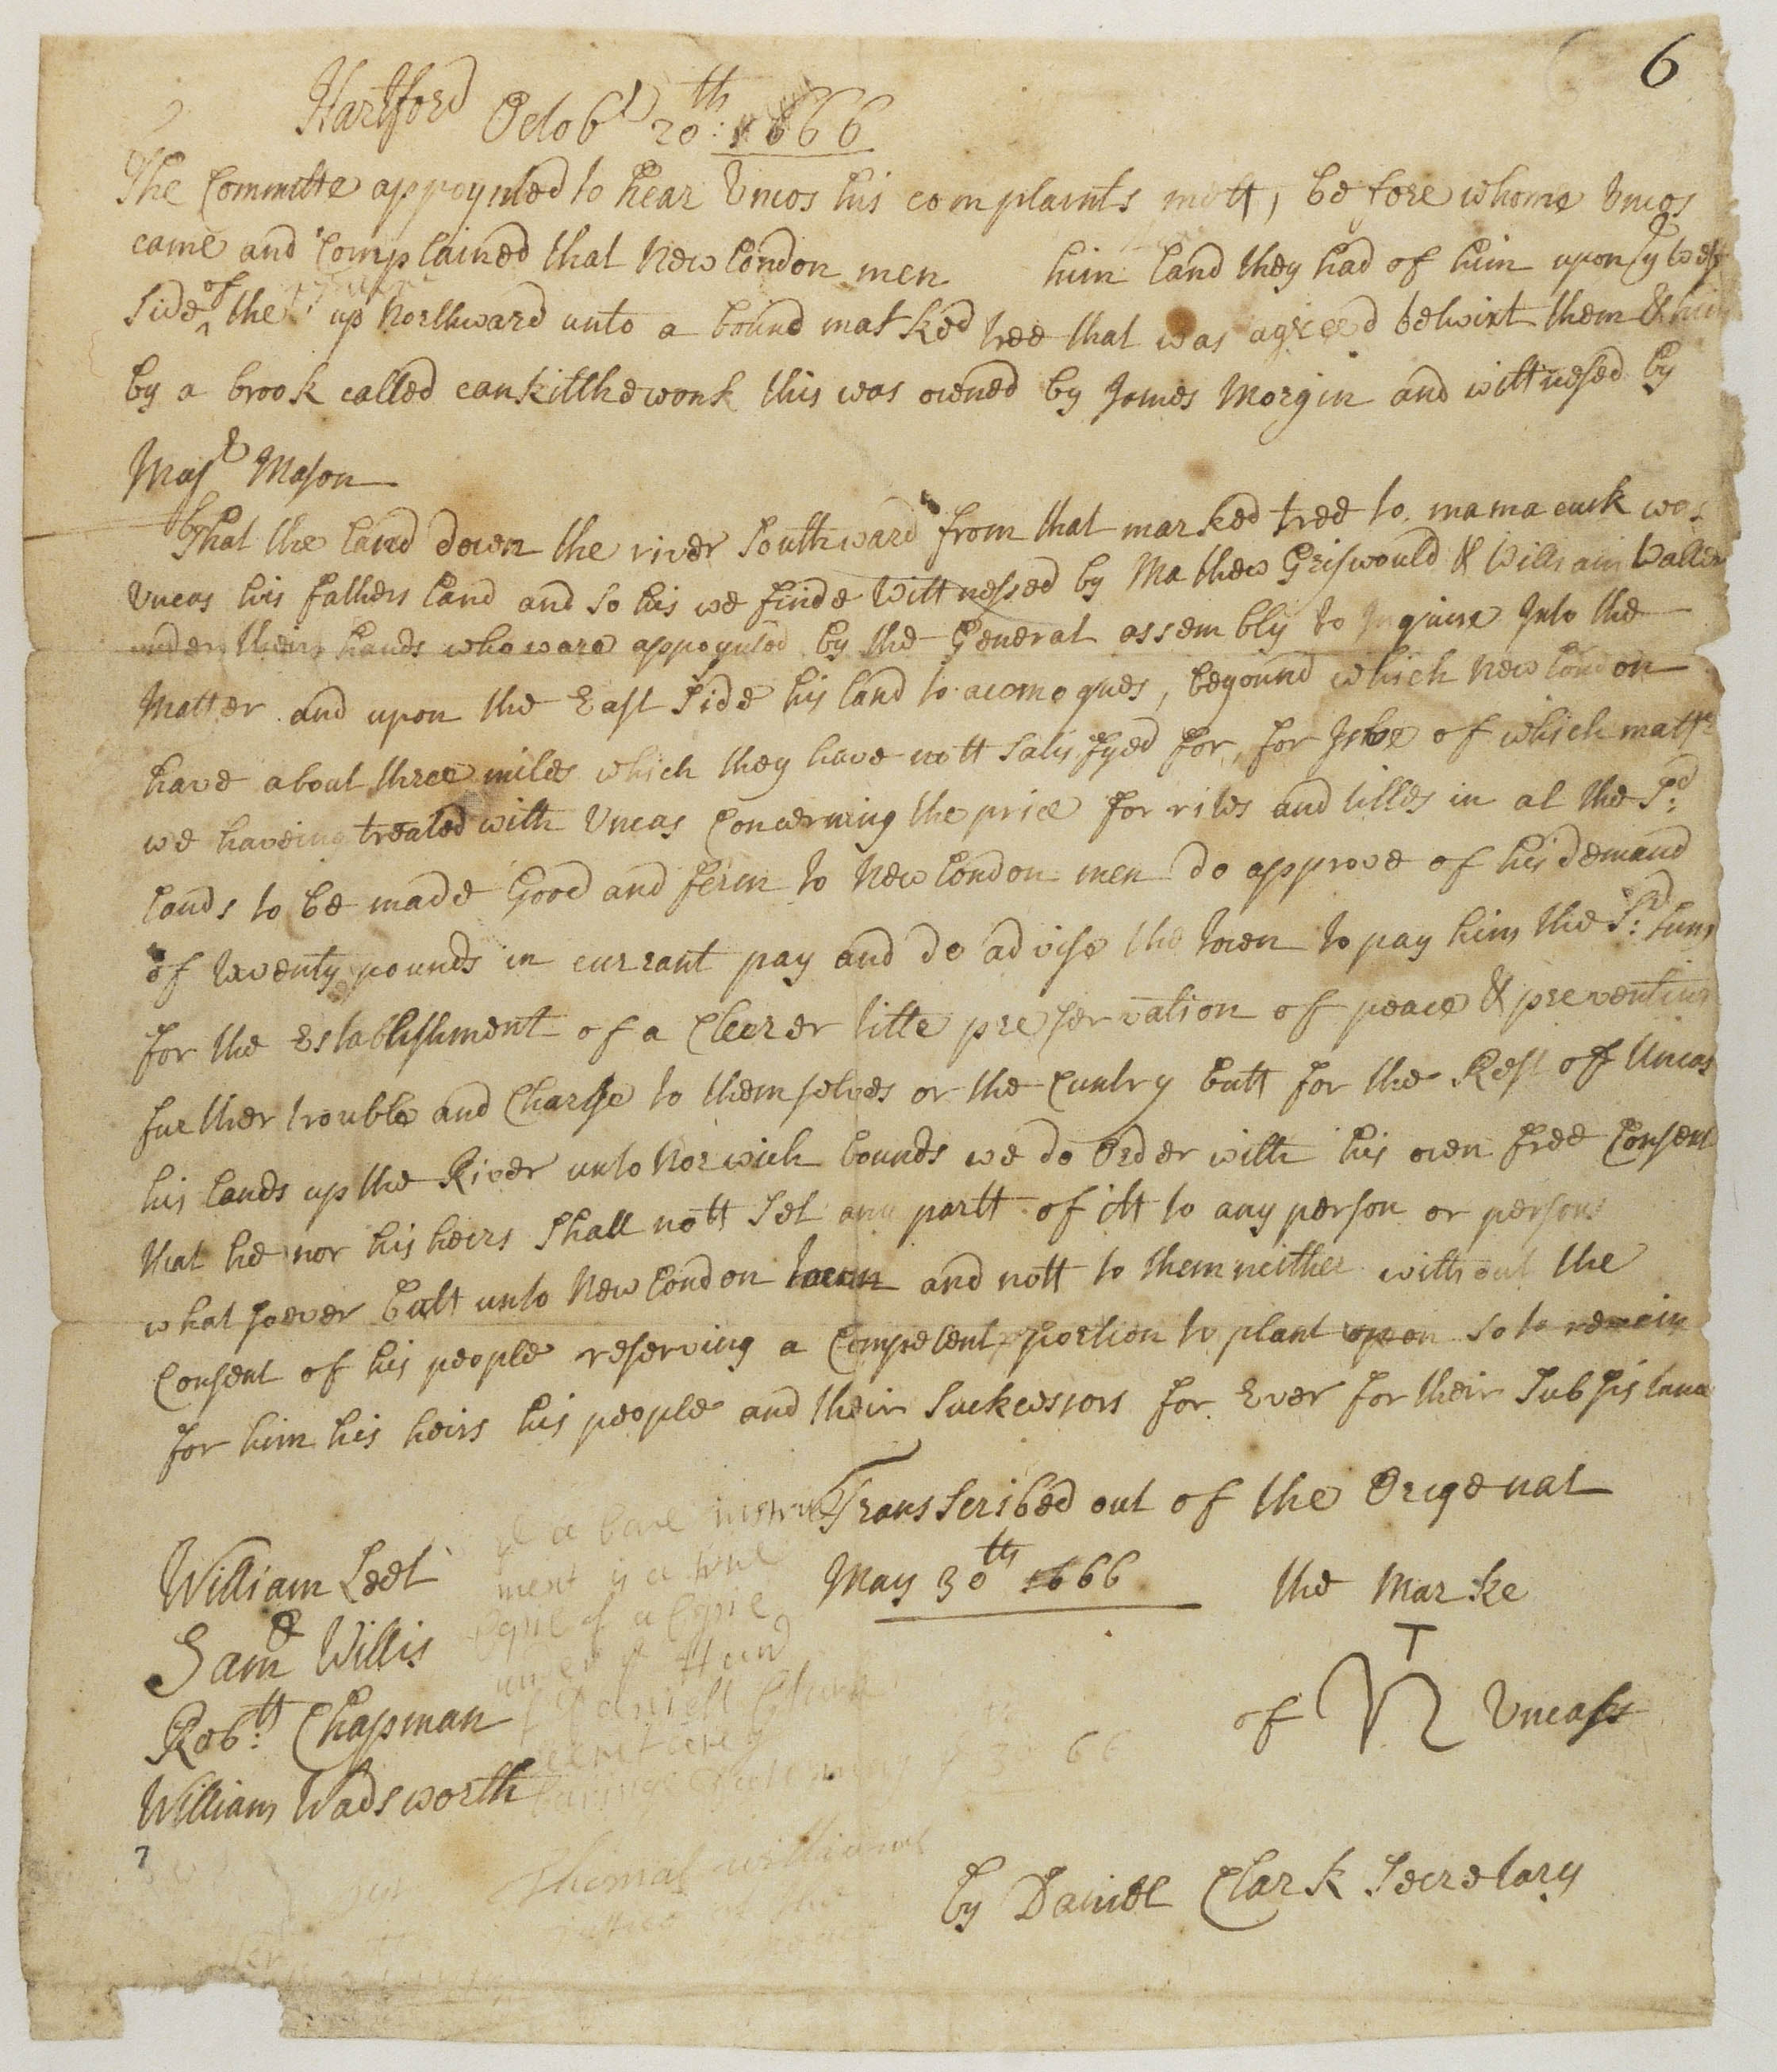 6
Hartford Octobr 20th: 1666
The Committe appoynted to hear Uncos his complaints mett, before whome Uncos
came and Complained that New London men him land they had of him upon ye west
side of the up Northward unto a bound marked tree that was agreed betwixt them & him
by a brook called cankitthewonk this was owned by James Morgin and wittnesed by
Majr Mason
That the land down the river Southward from that marked tree to mamacuk was
Uncas his fathers land and so his we finde Wittnessed by Mathew Griswould & William Waller
under their hands who ware appoynted by the General assembly to Inquire Into the
Matter and upon the East Side his land to acomoques, beyound which New London
have about three miles which they have nott satisfyed for, for Isue of which mattr
we haveing treated with Uncas Concerning the price for rites and titles in al the Sd:
lands to be made Good and ferm to New London men do approve of his demand
of twenty pounds in currant pay and do advise the town to pay him the Sd: sum
for the Establishment of a Clearer title preservation of peace & preventing
further trouble and Charge to themselves or the Cuntry butt for the Rest of Uncas
his lands up the River unto Norwich bounds we do Order with his own free Consent
that he nor his heirs Shall nott Sel any partt of itt to any person or persons
whatsoever butt unto New London town and nott to them neither without the
Consent of his people reserving a Competent portion to plant upon so to remain
for him his heirs his people and their Suckcessors for Ever for their Subsistance
Transcribed out of the Origenal
May 30th 1666
William Leet
Samll Willis
Robtt: Chapman
William Wadsworth
ye above instru
ment is a true
Copie of a Copie
under ye Hand
of Daniell Clark
Secretarey
bearing Date may ye 30th 66
Thomas Williams
the Marke
of Uncass
by Daniel Clark Secretary
7